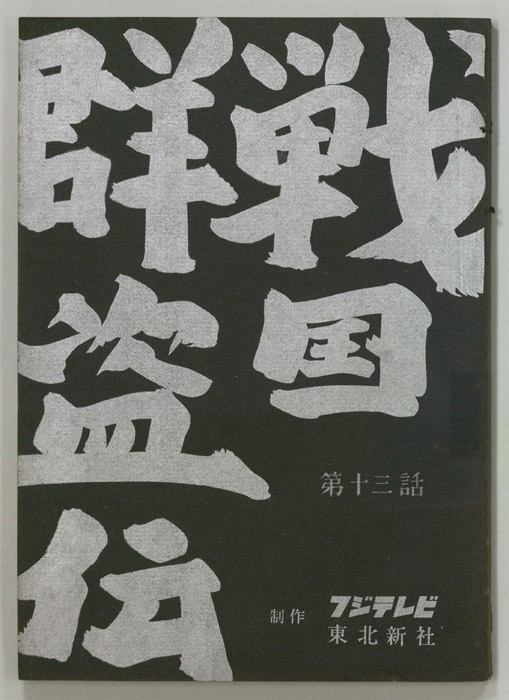 戦国
群盗伝
第十三話
制作 フジテレビ
東北新社